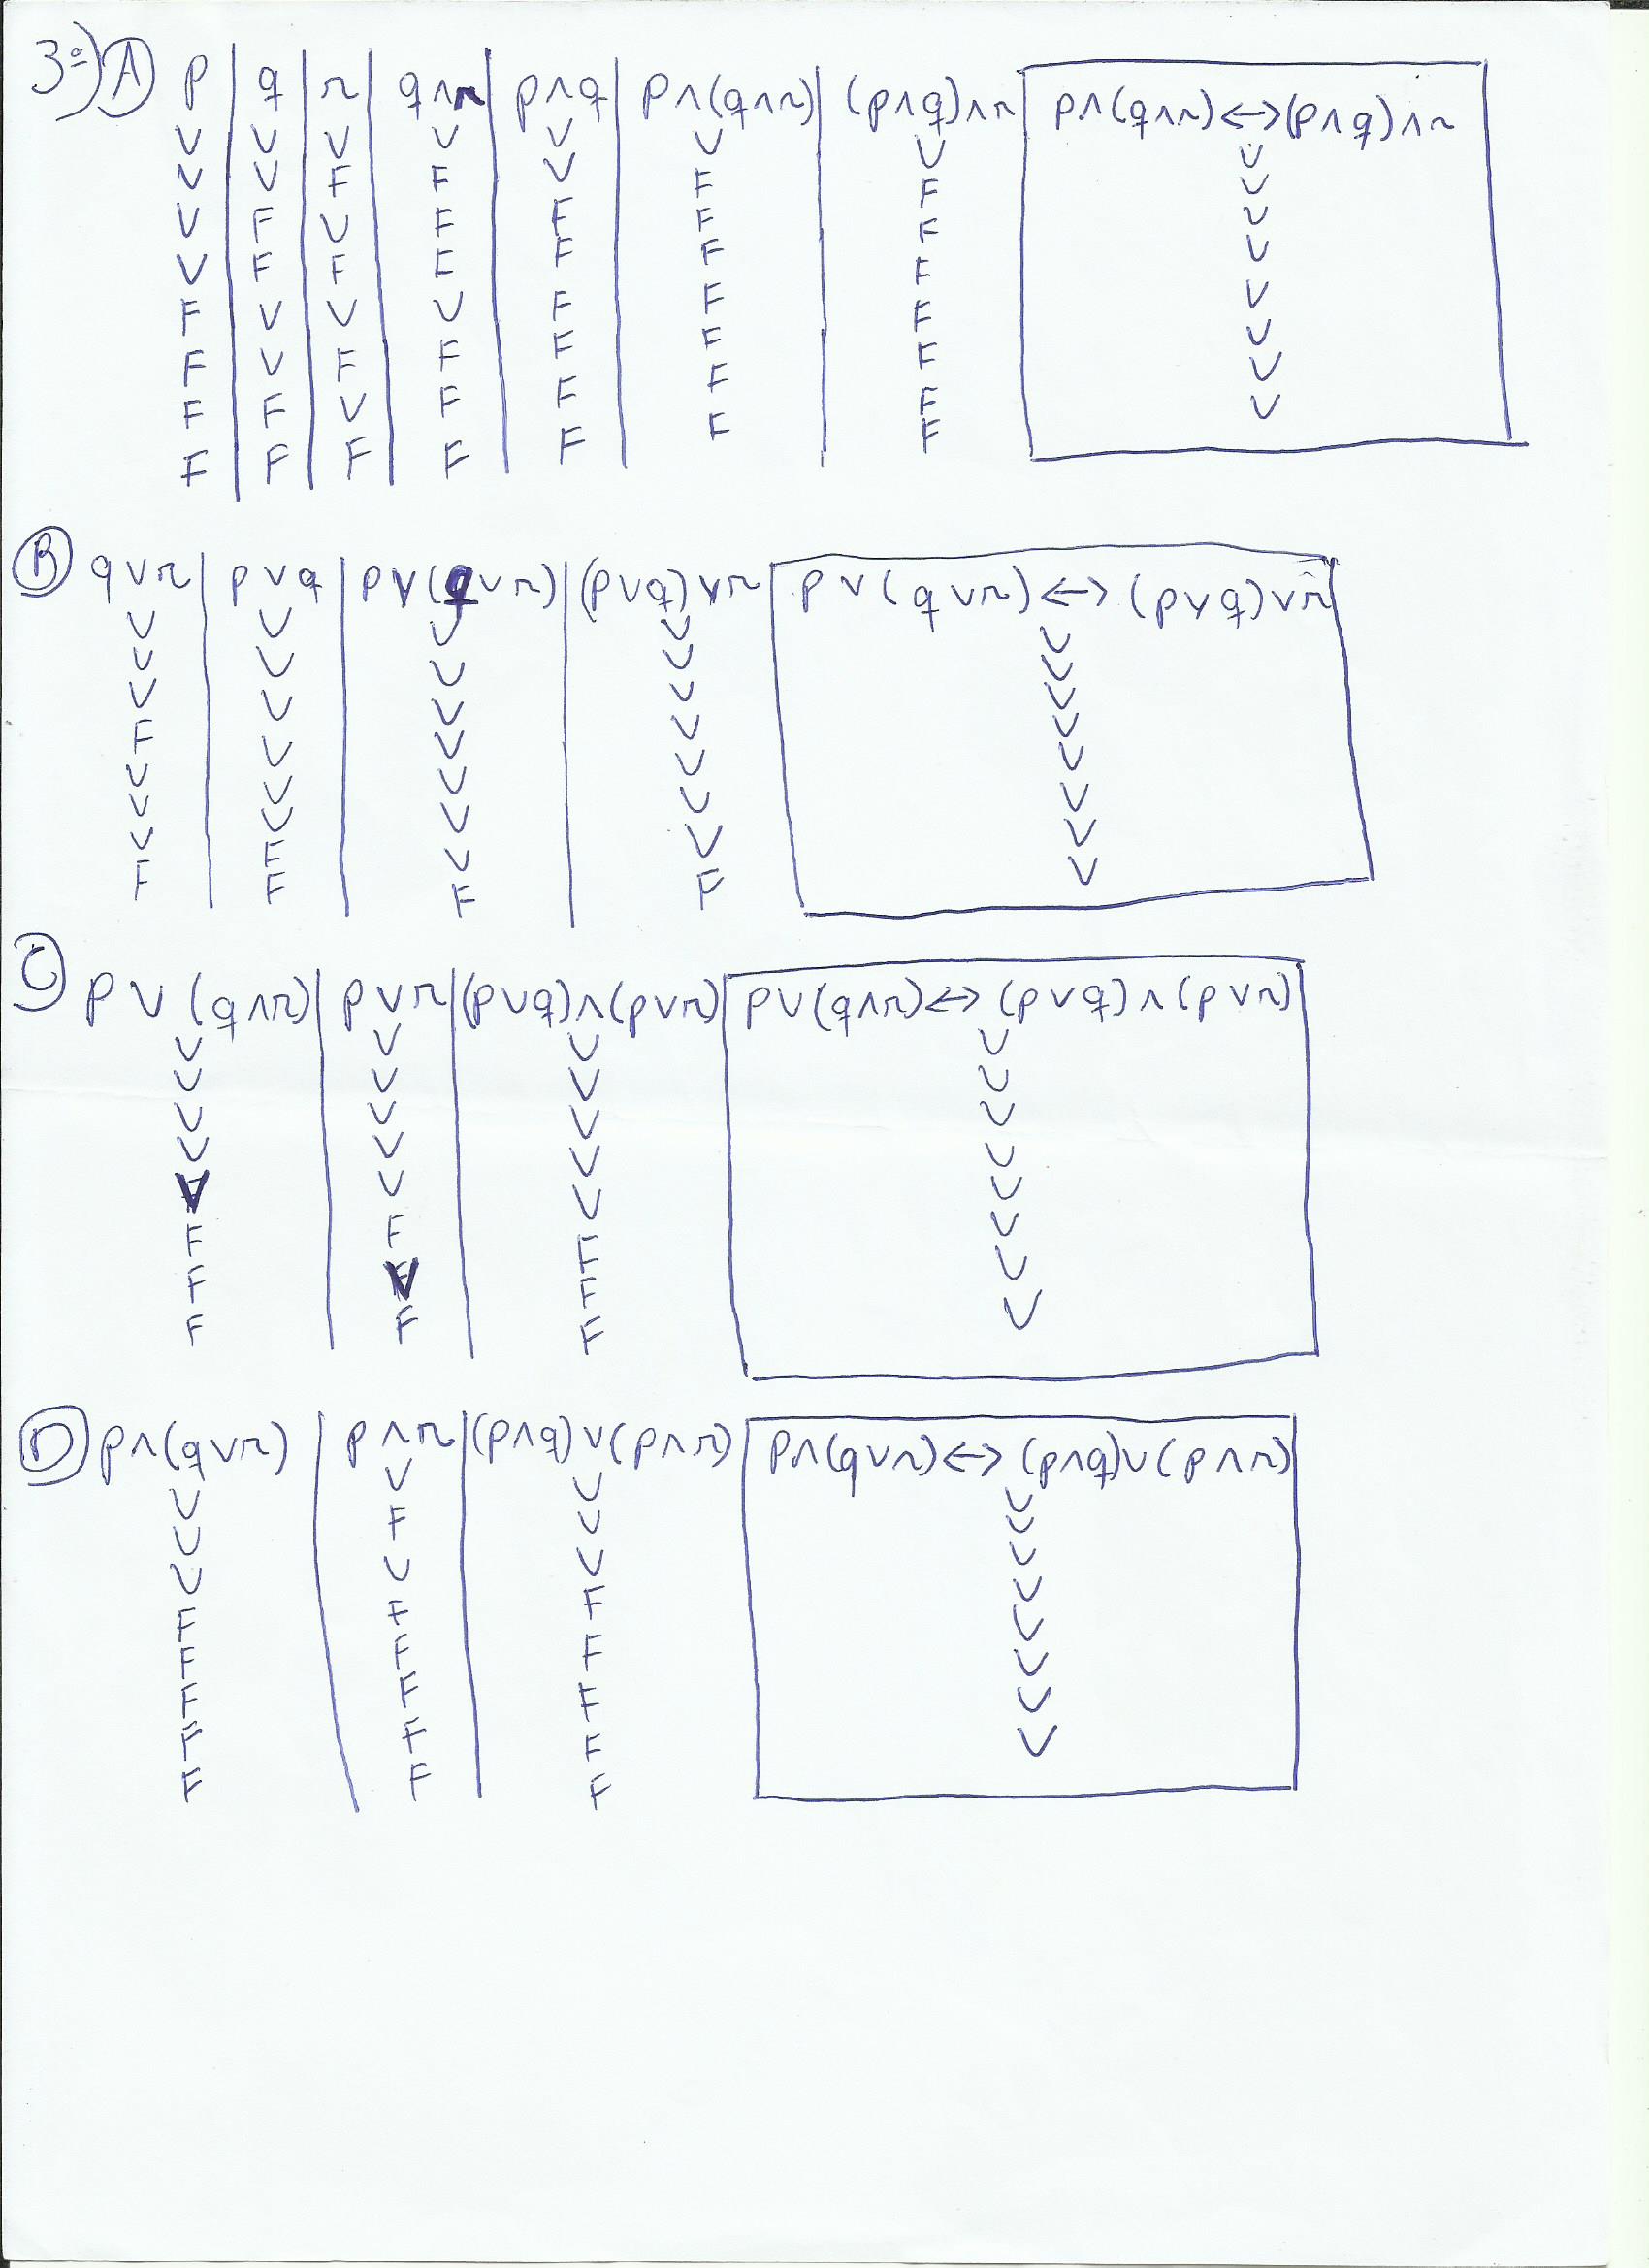 3º) A p | q | r | q∧r | p∧q | p∧(q∧r) | (p∧q)∧r | p∧(q∧r)↔(p∧q)∧r
V V V V V V V V
V V F F V F F V
V F V F F F F V
V F F F F F F V
F V V V F F F V
F V F F F F F V
F F V F F F F V
F F F F F F F V
B q∨r | p∨q | p∨(q∨r) | (p∨q)∨r | p∨(q∨r)↔(p∨q)∨r
V V V V V
V V V V V
V V V V V
F V V V V
V V V V V
V V V V V
V F V V V
F F F F V
C p∨(q∧r) | p∨r | (p∨q)∧(p∨r) | p∨(q∧r)↔(p∨q)∧(p∨r)
V V V V
V V V V
V V V V
V V V V
V V V V
F F F V
F V F V
F F F V
D p∧(q∨r) | p∧r | (p∧q)∨(p∧r) | p∧(q∨r)↔(p∧q)∨(p∧r)
V V V V
V F V V
V V V V
F F F V
F F F V
F F F V
F F F V
F F F V